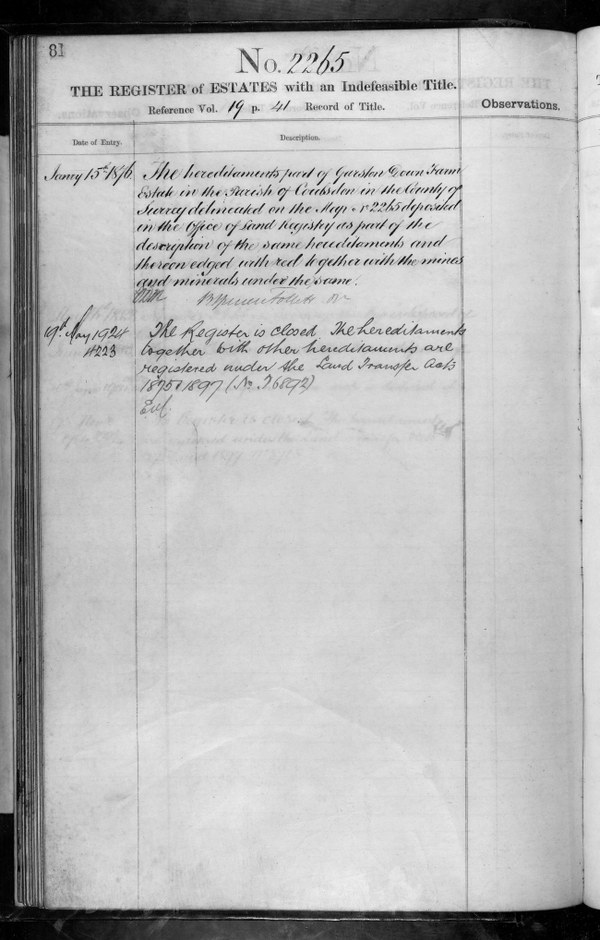 81
No. 2265
THE REGISTER of ESTATES with an Indefeasible Title.
Reference Vol. 19 p. 41 Record of Title.
Observations.
Date of Entry.
Description.
Jany 15th 1876
The hereditaments part of Garston Down Farm
Estate in the Parish of Coulsdon in the County of
Surrey delineated on the Map No 2265 deposited
in the Office of Land Registry as part of the
description of the same hereditaments and
thereon edged with red together with the mines
and minerals under the same.
19th May 1924
The Register is closed The hereditaments
together with other hereditaments are
registered under the Land Transfer Acts
1875 & 1897 (No